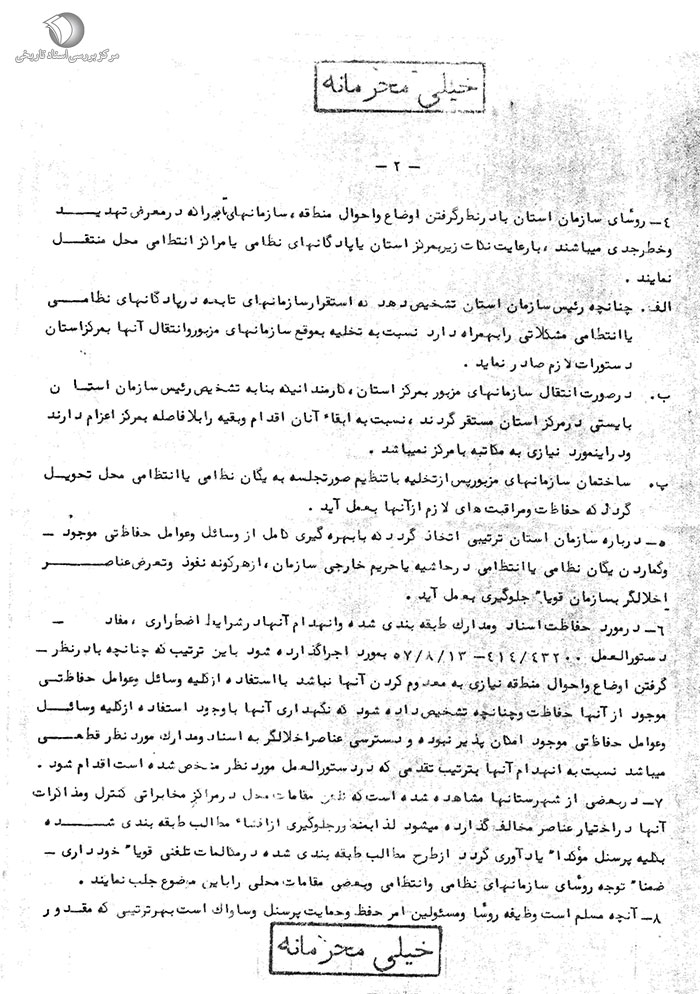 مرکز بررسی اسناد تاریخی
خیلی محرمانه
- ۲ -
۴- روسای سازمان استان بادرنظرگرفتن اوضاع واحوال منطقه ، سازمانهای تابعه راکه درمعرض تهدیـــد
وخطرجدی میباشند ، بارعایت نکات زیربمرکز استان یاپادگانهای نظامی یامراکز انتظامی محل منتقــل
نمایند .
الف. چنانچه رئیس سازمان استان تشخیص دهد که استقرارسازمانهای تابعه درپادگانهای نظامـــی
یاانتظامی مشکلاتی رابهمراه دارد نسبت به تخلیه بموقع سازمانهای مزبوروانتقال آنها بمرکزاستان
دستورات لازم صادر نماید .
ب. درصورت انتقال سازمانهای مزبور بمرکز استان ، کارمندانیکه بنابه تشخیص رئیس سازمان استـا ن
بایستی درمرکز استان مستقر گردند ، نسبت به ابقاء آنان اقدام وبقیه رابلافاصله بمرکز اعزام دارند
ودراینمورد نیازی به مکاتبه بامرکز نمیباشد .
پ. ساختمان سازمانهای مزبورپس ازتخلیه باتنظیم صورتجلسه به یگان نظامی یاانتظامی محل تحویــل
گردد که حفاظت ومراقبت های لازم ازآنها بعمل آید .
۵- درباره سازمان استان ترتیبی اتخاذ گردد که بابهره گیری کامل از وسائل وعوامل حفاظتی موجود -
وگماردن یگان نظامی یاانتظامی درحاشیه یاحریم خارجی سازمان ، ازهرگونه نفوذ وتعرض عناصـــر
اخلالگر بسازمان قویا" جلوگیری بعمل آید .
۶- درمورد حفاظت اسناد ومدارك طبقه بندی شده وانهدام آنهادرشرایط اضطراری ، مفاد -
دستورالعمل ۴۱۴/۴۳۲۰۰ - ۵۷/۸/۱۳ بمورد اجراگذارده شود باین ترتیب که چنانچه بادرنظر -
گرفتن اوضاع واحوال منطقه نیازی به معدوم کردن آنها نباشد بااستفاده ازکلیه وسائل وعوامل حفاظتی
موجود ازآنها حفاظت وچنانچه تشخیص داده شود که نگهداری آنها باوجود استفاده ازکلیه وسائــل
وعوامل حفاظتی موجود امکان پذیر نبوده و دسترسی عناصراخلالگر به اسناد ومدارك مورد نظر قطعـی
میباشد نسبت به انهدام آنها بترتیب تقدمی که دردستورالعمل مورد نظر مشخص شده است اقدام شود .
۷- دربعضی از شهرستانها مشاهده شده است که تلفن مقامات محل درمراکز مخابراتی کنترل ومذاکرات
آنها دراختیار عناصر مخالف گذارده میشود لذا بمنظورجلوگیری ازافشاء مطالب طبقه بندی شـــده
بکلیه پرسنل موکدا" یادآوری گردد ازطرح مطالب طبقه بندی شده درمکالمات تلفنی قویا" خودداری -
ضمنا" توجه روسای سازمانهای نظامی وانتظامی وبعضی مقامات محلی راباین موضوع جلب نمایند .
۸- آنچه مسلم است وظیفه روسا ومسئولین امر حفظ وحمایت پرسنل وساواك است بهرترتیبی که مقدور
خیلی محرمانه